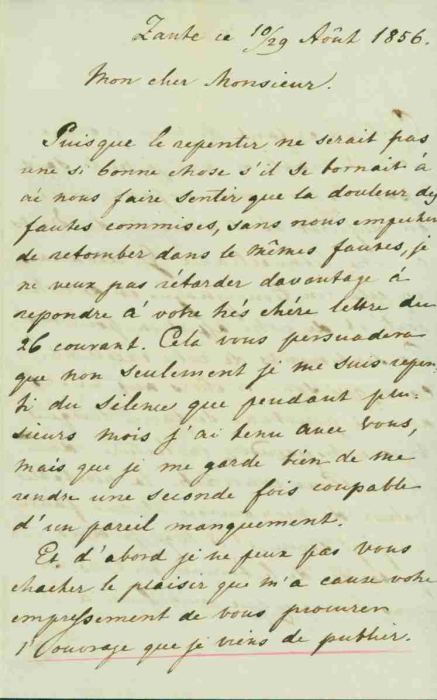 Zante ce 10/29 Août 1856.
Mon cher Monsieur.
Puisque le repentir ne serait pas
une si bonne chose s'il se bornait à
ne nous faire sentir que la douleur des
fautes commises, sans nous empecher
de retomber dans le mêmes fautes, je
ne veux pas rétarder davantage à
repondre à votre trés chére lettre du
26 courant. Cela vous persuadera
que non seulement je me suis repen-
ti du silence que pendant plu-
sieurs mois j'ai tenu avec vous,
mais que je me garde bien de me
rendre une seconde fois coupable
d'un pareil manquement.
Et d'abord je ne peux pas vous
chacher le plaisir que m'a causé votre
empressement de vous procurer
l'ouvrage que je viens de publier.